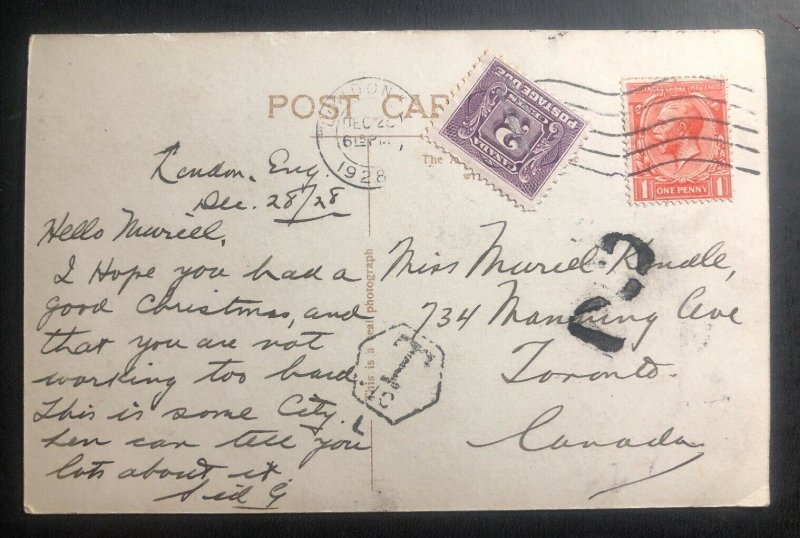 POST CAR
LONDON
DEC 28
6 15 PM
1928
CANADA
2
CENTS
POSTAGE DUE
POSTAGE REVENUE
1 ONE PENNY 1
The
This is a real photograph
London. Eng.
Dec. 28/28
Hello Muriel,
I Hope you had a
good Christmas, and
that you are not
working too hard
This is some City.
hen can tell you
lots about it
Sid G
Miss Muriel
734 Manning Ave
Toronto
Canada
T
2